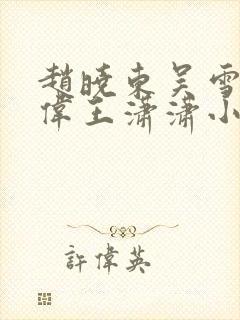 趙曉東吴雪
偉王瀟瀟小
許偉英